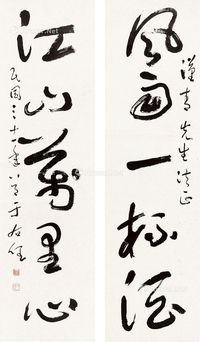 漢青先生法正
風雨一杯酒
江山萬里心
民國三十一年八月于右任